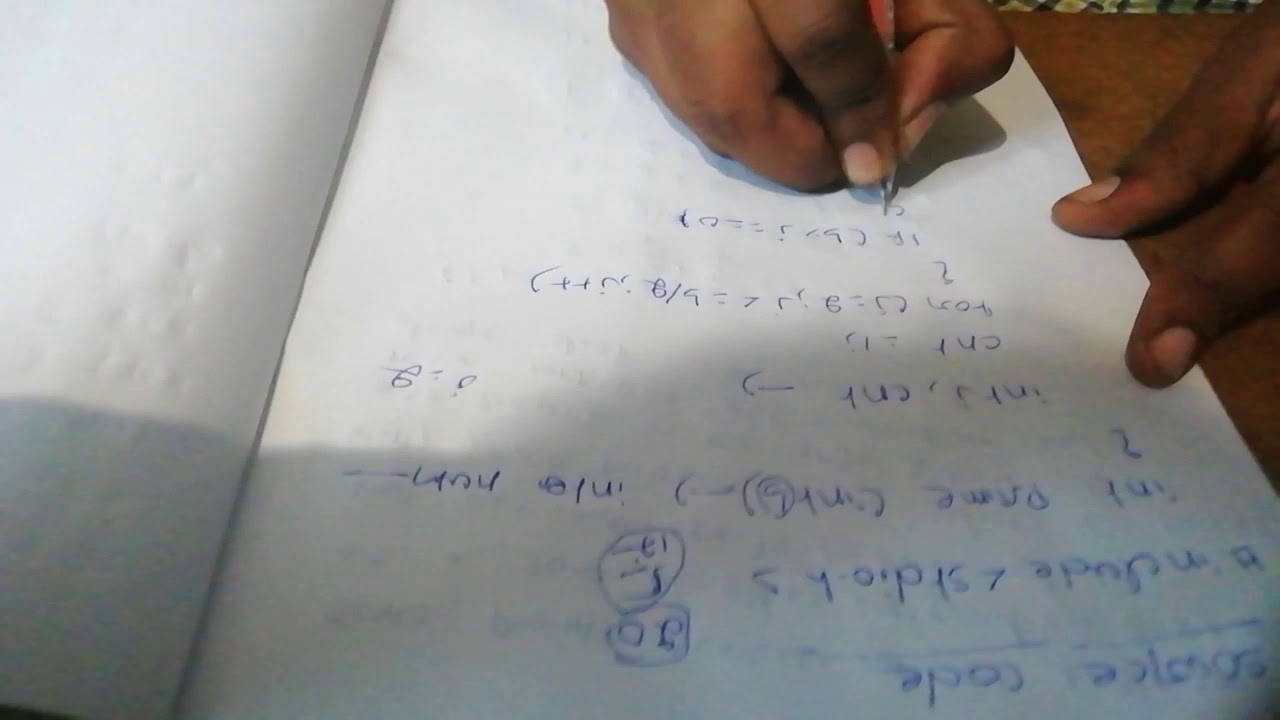 source code
# include <stdio.h>
20
5
17
int prime (int b) → int num
{
int j, cnt → j=2
cnt = 1;
for (j=2; j<=b/2; j++)
{
if (b% j==0)
{